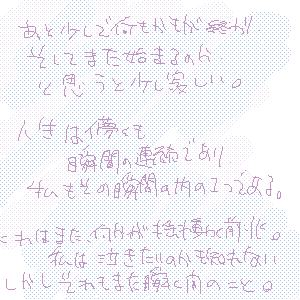 あと少しで何もかもが終わり
そしてまた始まるのか
と思うと少し寂しい。
人生は儚くも
瞬間の連続であり
私もその瞬間の内の1つである。
これはまた、何かが揺れ動く前兆。
私は泣きたいのかも知れない
しかしそれもまた瞬く間のこと。